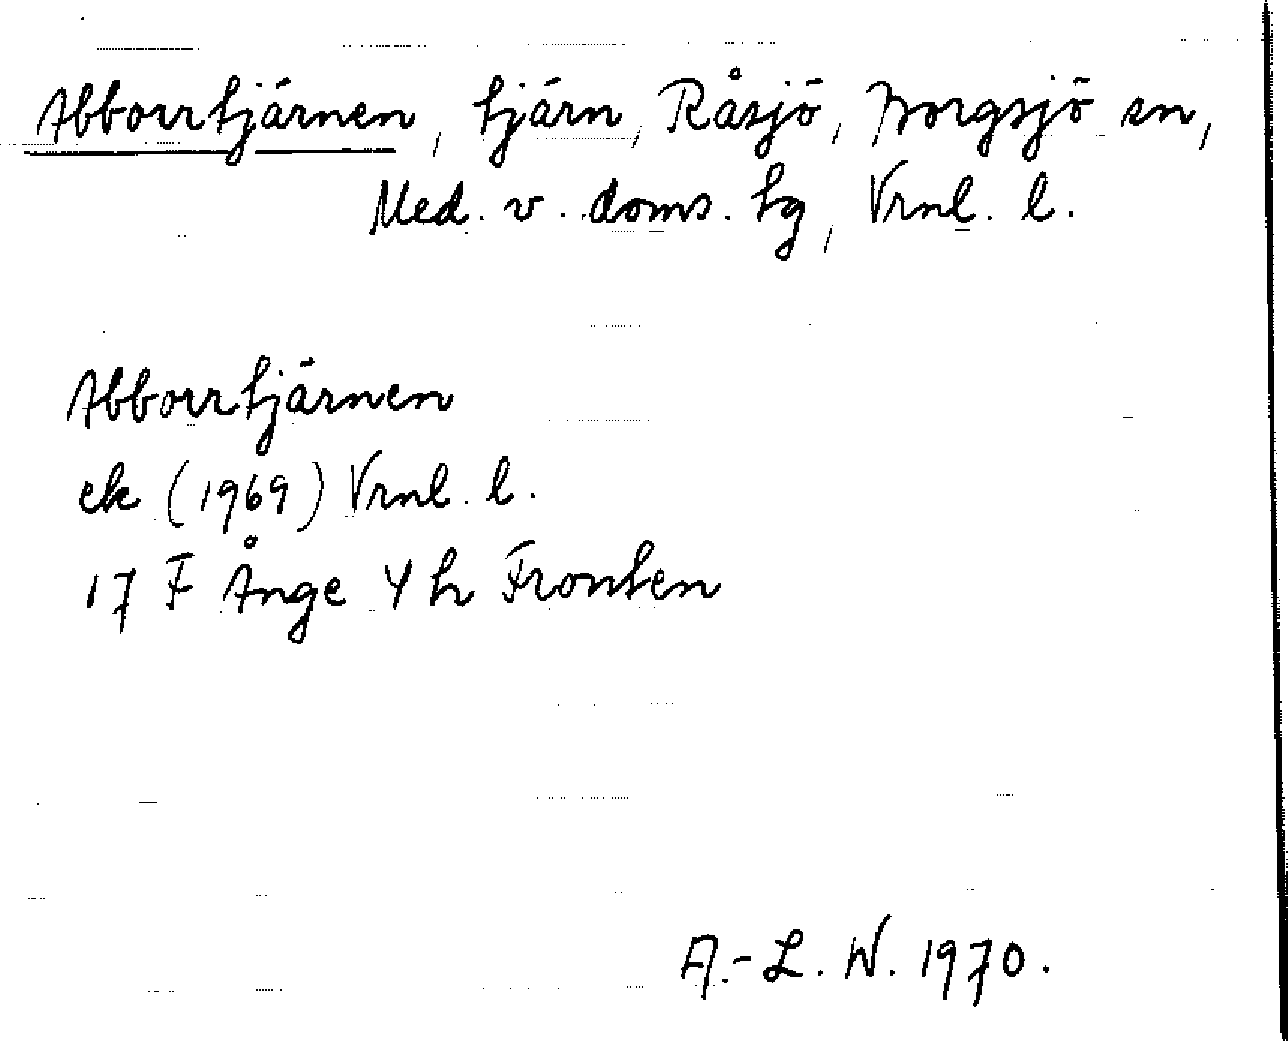 Abborrtjärnen, tjärn, Råsjö, Borgsjö sn,
Med. v. doms. tg, Vrnl. l.
Abborrtjärnen
ek (1969) Vrnl. l.
17 F Ånge 4 h Fronten
A.-L. W. 1970.